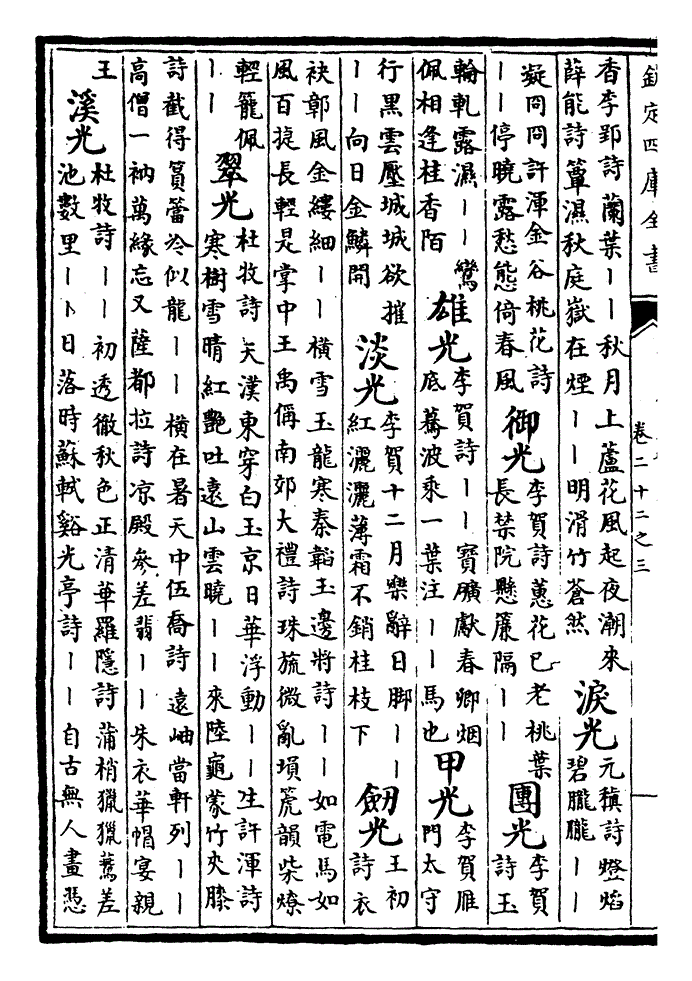 欽定四庫全書
卷二十二之三
香李郢詩蘭葉||秋月上蘆花風起夜潮來
薛能詩簟濕秋庭嶽在煙||明滑竹蒼然
淚光
元稹詩燈焰
碧朧朧||
凝冋冋許渾金谷桃花詩
||停曉露愁態倚春風
御光
李賀詩蕙花已老桃葉
長禁院懸簾隔||
團光
李賀
詩玉
輪軋露濕||鸞
佩相逢桂香陌
雄光
李賀詩||寳礦獻春卿烟
底驀波乘一葉注||馬也
甲光
李賀雁
門太守
行黒雲壓城城欲摧
||向日金鱗開
淡光
李賀十二月樂辭日脚||
紅灑灑薄霜不銷桂枝下
劒光
王初
詩衣
袂郭風金縷細||橫雪玉龍寒秦韜玉邊將詩||如電馬如
風百㨗長輕是掌中王禹偁南郊大禮詩珠旒微亂塤箎韻柴燎
輕籠佩
||
翠光
杜牧詩天漢東穿白玉京日華浮動||生許渾詩
寒樹雪晴紅艷吐遠山雲曉||來陸龜蒙竹夾膝
詩截得篔簹冷似龍||橫在暑天中伍喬詩遠岫當軒列||
高僧一衲萬緣忘又薩都拉詩涼殿參差翡||朱衣華帽宴親
王
溪光
杜牧詩||初透徹秋色正清華羅隱詩蒲梢獵獵䴏差
池數里||日落時蘇軾谿光亭詩||自古無人畫憑